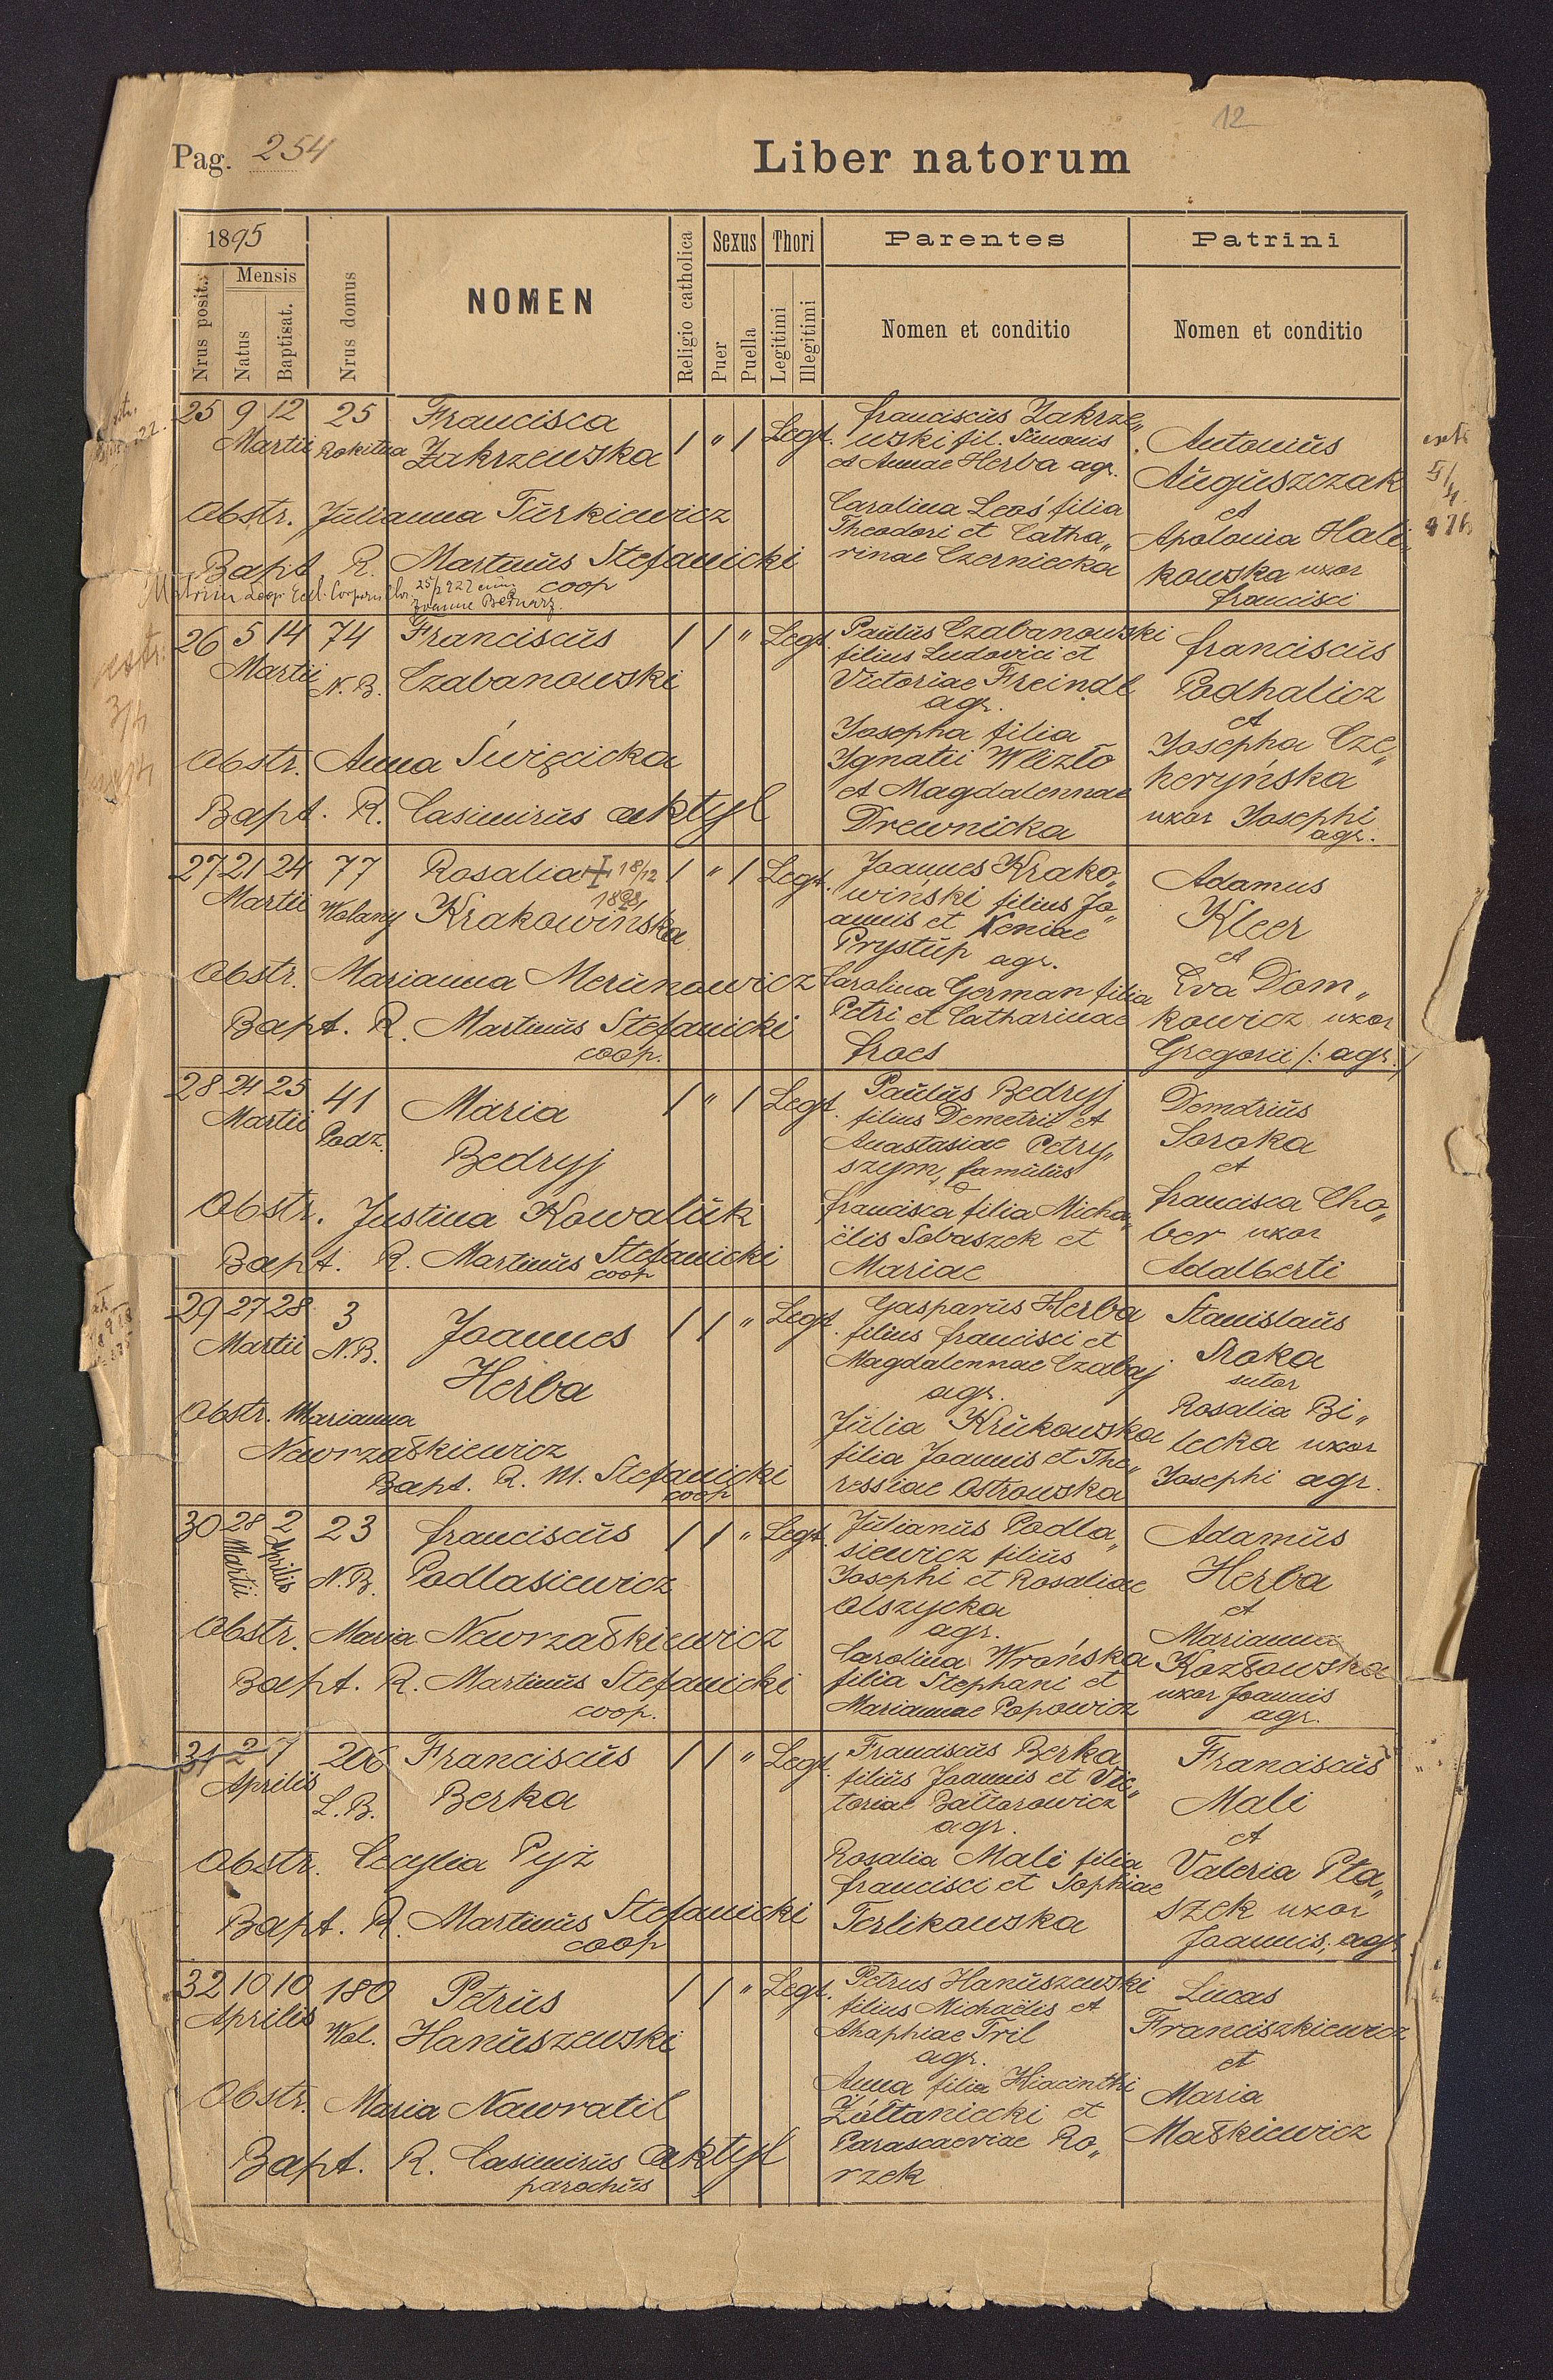 12
Pag. 254
Liber natorum
1895
Mensis
Nrus posit.
Natus
Baptisat.
Nrus domus
NOMEN
Religio catholica
Sexus
Puer
Puella
Thori
Legitimi
Illegitimi
Parentes
Nomen et conditio
Patrini
Nomen et conditio
25 9 12 25 Francisca / " / Legt.
Martii Rokitna Zakrzewska
Obstr. Julianna Turkiewicz
Bapt R. Martinus Stefanicki
coop
25/2 922 cum
Joanne Bednarz.
Franciscus Zakrze„
wski fil. Simonis
et Annae Herba agr.
Carolina Leoś filia
Theodori et Catha„
rinae Czerniecka
Antonius
Auguszczak
et
Apolonia Hali„
kowska uxor
Francisci
26 5 14 74 Franciscus / / " Legt.
Martii N. B. Czabanowski
Obstr. Anna Święcicka
Bapt. R. Casimirus Aktyl
Paulus Czabanowski
filius Ludovici et
Victoriae Freindl
agr.
Josepha filia
Ignatii Wlizło
et Magdalennae
Drewnicka
Franciscus
Podhalicz
et
Josepha Cze„
heryńska
uxor Josephi
agr.
27 21 24 77 Rosalia 18/12 / " / Legt.
1898
Martii Wolany Krakowińska
Obstr. Marianna Merunowicz
Bapt. R. Martinus Stefanicki
coop.
Joannes Krako„
wiński filius Jo„
annis et Xeniae
Prystup agr.
Carolina German filia
Petri et Catharinae
Croes
Adamus
Kleer
et
Eva Dom„
kowicz uxor
Gregorii /: agr :/
28 24 25 41 Maria / " / Legt.
Martii Podz. Bedryj
Obstr. Justina Kowaluk
Bapt. R. Martinus Stefanicki
coop
Paulus Bedryj
filius Demetrii et
Anastasiae Petry„
szym, famulus
Francisca filia Micha„
ëlis Sobaszek et
Mariae
Demetrius
Soroka
et
Francisca Cho„
ber uxor
Adalberti
29 27 28 3 Joannes / / " Legt.
Martii N. B. Herba
Obstr. Marianna
Nawrzałkiewicz
Bapt. R. M. Stefanicki
coop
Gasparus Herba
filius Francisci et
Magdalennae Czabaj
agr.
Julia Krukowska
filia Joannis et The„
ressiae Ostrowska
Stanislaus
Sroka
sutor
Rosalia Bi„
lecka uxor
Josephi agr.
30 28 2 23 Franciscus / / " Legt.
Martii Aprilis N. B. Podlasiewicz
Obstr. Maria Nawrzałkiewicz
Bapt. R. Martinus Stefanicki
coop.
Julianus Podla„
siewicz filius
Josephi et Rosaliae
Olszycka
agr.
Carolina Wrońska
filia Stephani et
Mariannae Popowicz
Adamus
Herba
et
Marianna
Kozłowska
uxor Joannis
agr.
31 2 7 206 Franciscus / / " Legt.
Aprilis L. B. Berka
Obstr. Cecylia Pyż
Bapt. R. Martinus Stefanicki
coop
Franciscus Berka
filius Joannis et Vic„
toriae Battorowicz
agr.
Rosalia Mali filia
Francisci et Sophiae
Terlikowska
Franciscus
Mali
et
Valeria Pta„
szek uxor
Joannis, agr
32 10 10 180 Petrus / / " Legt.
Aprilis Wol. Hanuszewski
Obstr. Maria Nawratil
Bapt. R. Casimirus Aktyl
parochus
Petrus Hanuszewski
filius Michaëlis et
Ahaphiae Tril
agr.
Anna filia Hiacinthi
Żółtaniecki et
Parascaeviae Ro„
rzek
Lucas
Franciszkiewicz
et
Maria
Małkiewicz